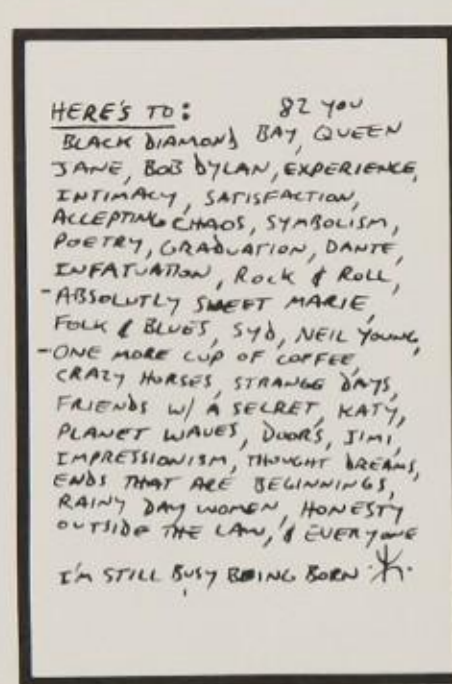 HERE'S TO: 82 YOU
BLACK DIAMOND BAY, QUEEN
JANE, BOB DYLAN, EXPERIENCE,
INTIMACY, SATISFACTION,
ACCEPTING CHAOS, SYMBOLISM,
POETRY, GRADUATION, DANTE,
INFATUATION, ROCK & ROLL,
-ABSOLUTLY SWEET MARIE,
FOLK & BLUES, SYD, NEIL YOUNG,
-ONE MORE CUP OF COFFEE,
CRAZY HORSES, STRANGE DAYS,
FRIENDS W/ A SECRET, KATY,
PLANET WAVES, DOORS, JIMI,
IMPRESSIONISM, THOUGHT DREAMS,
ENDS THAT ARE BEGINNINGS,
RAINY DAY WOMEN, HONESTY
OUTSIDE THE LAW, & EVERYONE
I'M STILL BUSY BEING BORN